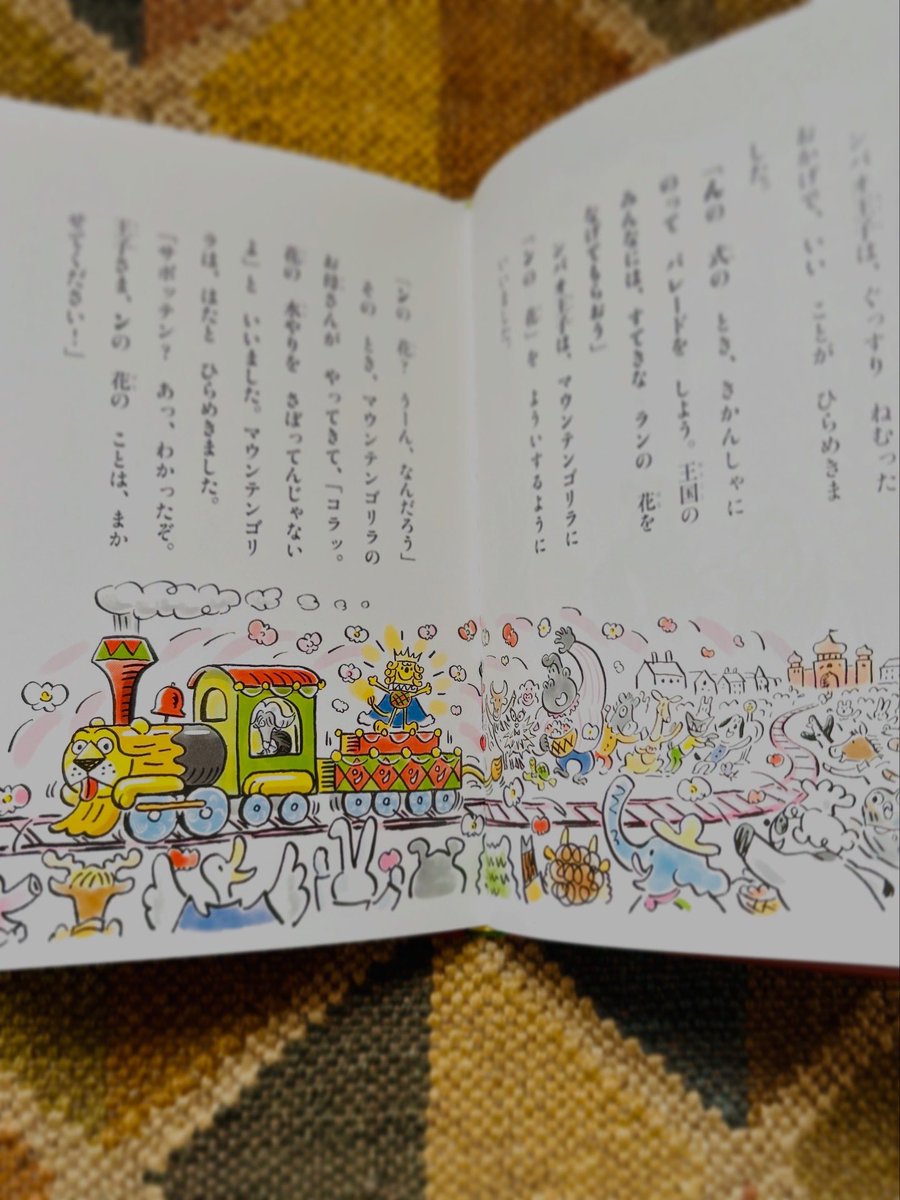 ンパオ王子は、ぐっすり ねむった
おかげで、いい ことが ひらめきま
した。
「んの 式の とき、きかんしゃに
のって パレードを しよう。王国の
みんなには、すてきな ランの 花を
なげてもらおう」
ンパオ王子は、マウンテンゴリラに
「ンの 花」を よういするように
いいました。
「ンの 花? うーん、なんだろう」
その とき、マウンテンゴリラの
お母さんが やってきて、「コラッ。
花の 水やりを さぼってんじゃない
よ」と いいました。マウンテンゴリ
ラは、はたと ひらめきました。
「サボッテン? あっ、わかったぞ。
王子さま、ンの 花の ことは、まか
せてください!」